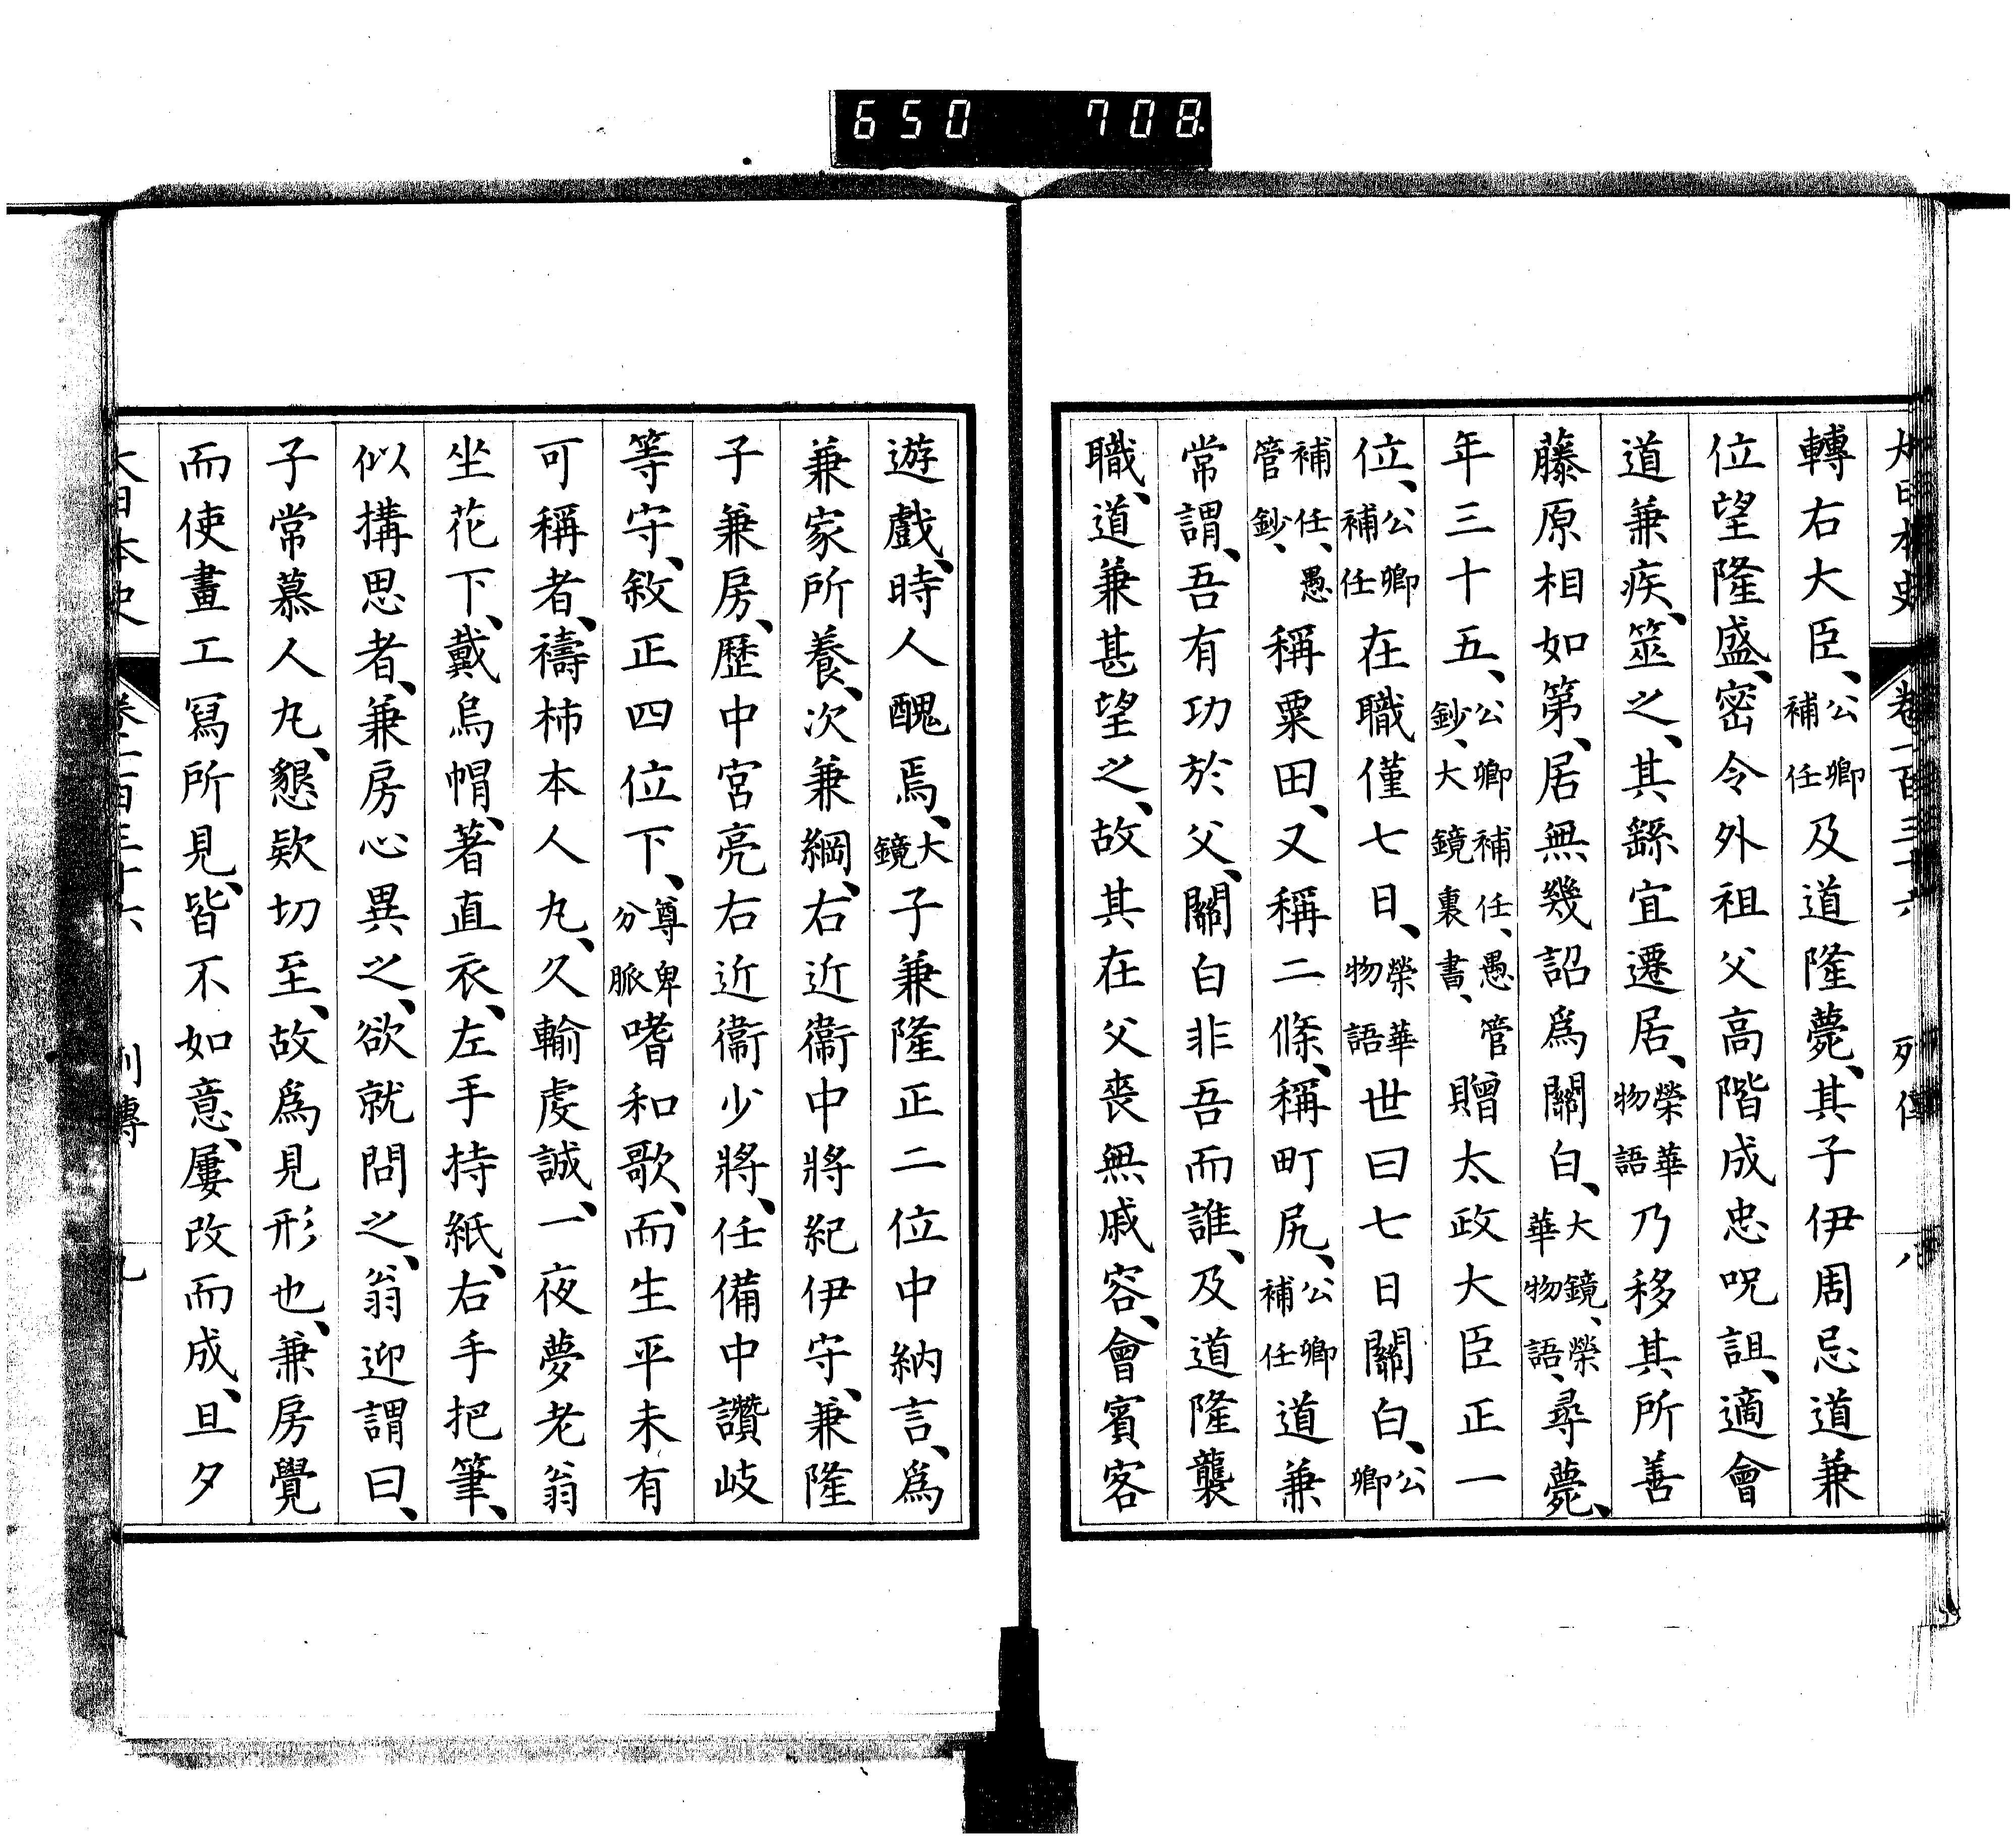 650 708
大日本史 卷一百三十六 列傳 八
轉右大臣、公卿補任及道隆薨、其子伊周忌道兼
位望隆盛、密令外祖父高階成忠呪詛、適會
道兼疾、筮之、其繇宜遷居、榮華物語乃移其所善
藤原相如第、居無幾詔爲關白、大鏡、榮華物語、尋薨、
年三十五、公卿補任、愚管鈔、大鏡裏書、贈太政大臣正一
位、公卿補任在職僅七日、榮華物語世曰七日關白、公卿
補任、愚管鈔、稱粟田、又稱二條、稱町尻、公卿補任道兼
常謂、吾有功於父、關白非吾而誰、及道隆襲
職、道兼甚望之、故其在父喪無戚容、會賓客
遊戲、時人醜焉、大鏡子兼隆正二位中納言、爲
兼家所養、次兼綱、右近衞中將紀伊守、兼隆
子兼房、歷中宮亮右近衞少將、任備中讚岐
等守、敘正四位下、尊卑分脈嗜和歌、而生平未有
可稱者、禱柿本人丸、久輸虔誠、一夜夢老翁
坐花下、戴烏帽、著直衣、左手持紙、右手把筆、
似搆思者、兼房心異之、欲就問之、翁迎謂曰、
子常慕人丸、懇欵切至、故爲見形也、兼房覺
而使畫工寫所見、皆不如意、屢改而成、旦夕
大日本史 卷一百三十六 列傳 九